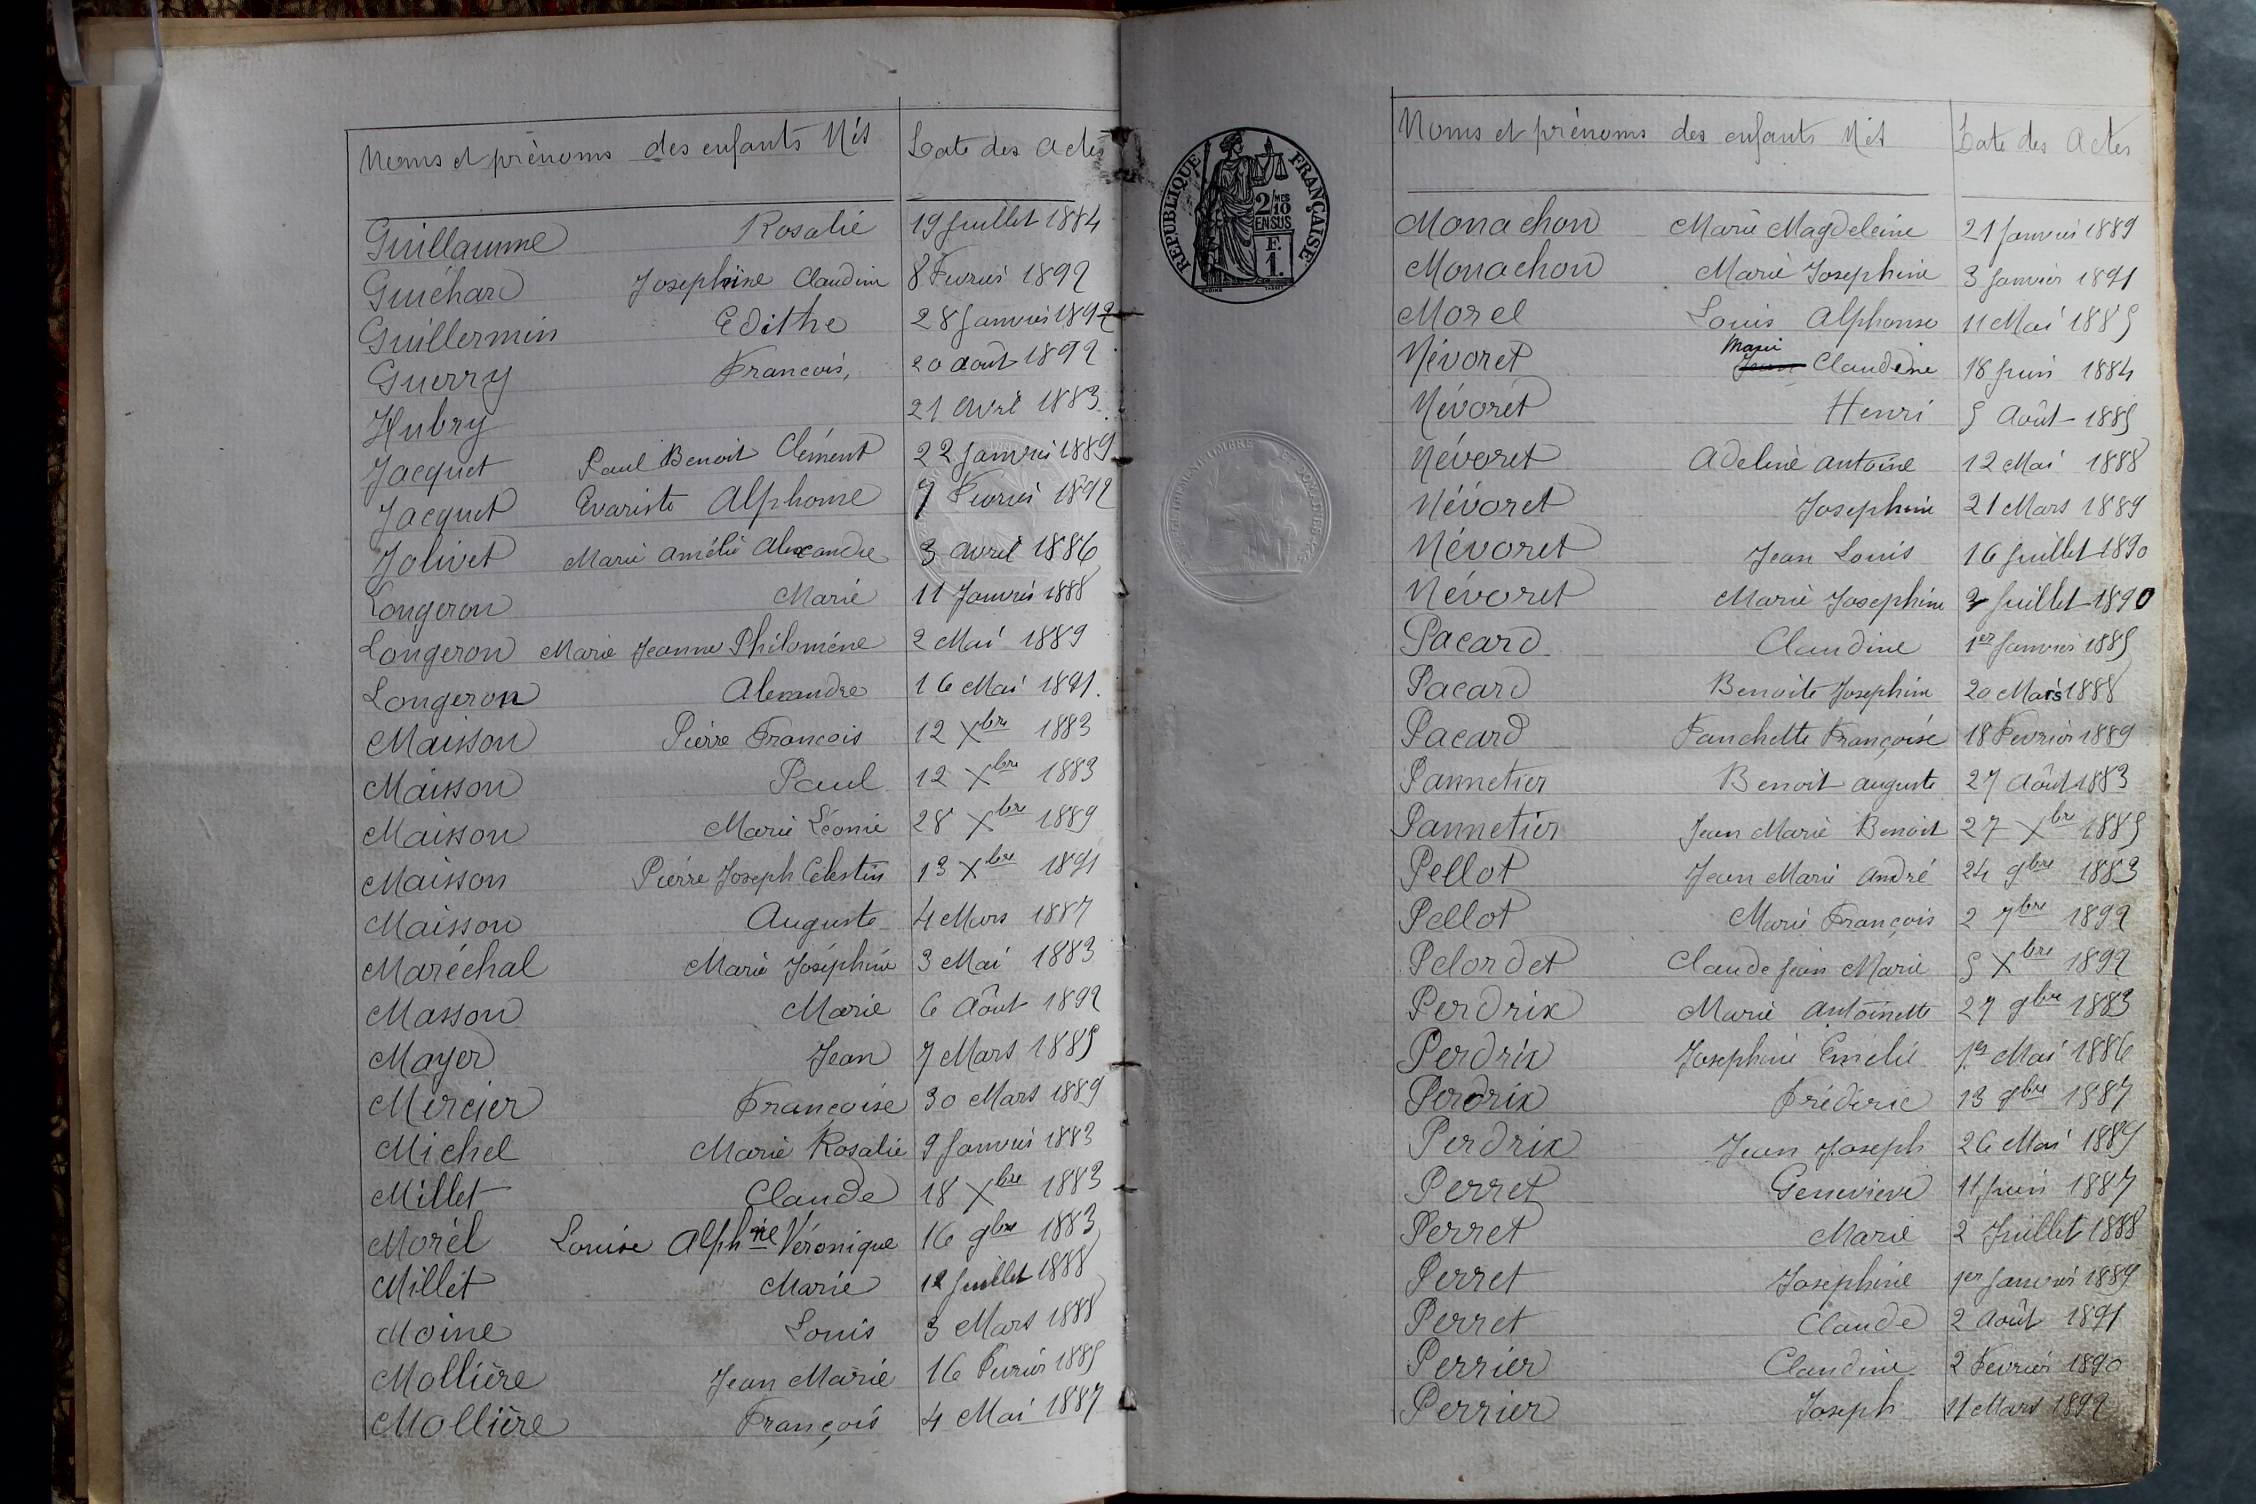 Noms et prénoms des enfants Nés Date des Actes
Guillaume Rosalie 19 Juillet 1884
Guichard Josephine Claudine 8 Fevrier 1892
Guillermin Edithe 28 Janvier 1892
Guerry Francois, 20 août 1892
Hubry 21 Avril 1883
Jacquet Paul Benoit Clément 22 Janvier 1889
Jacquet Evariste Alphonse 7 Fevrier 1892
Jolivet Marie Amélie Alexandre 3 Avril 1886
Longeron Marie 11 Janvier 1888
Longeron Marie Jeanne Philoméne 2 Mai 1889
Longeron Alexandre 16 Mai 1891.
Maisson Pierre Francois 12 Xbre 1883
Maisson Paul 12 Xbre 1883
Maisson Marie Léonie 28 Xbre 1889
Maisson Pierre Joseph Célestin 13 Xbre 1891
Maisson Auguste 4 Mars 1887
Maréchal Marie Joséphine 3 Mai 1883
Masson Marie 6 Août 1892
Mayer Jean 7 Mars 1885
Mercier Francoise 30 Mars 1889
Michel Marie Rosalie 9 Janvier 1883
Millet Claude 18 Xbre 1883
Morél Louise Alphnie Véronique 16 9bre 1883
Millet Marie 12 Juillet 1888
Moine Louis 3 Mars 1888
Mollière Jean Marie 16 Fevrier 1885
Mollière François 4 Mai 1887
REPUBLIQUE FRANÇAISE
2/10 MES
EN SUS
F.
1.
Noms et prénoms des enfants Nés Date des Actes
Monachon Marie Magdeleine 21 Janvier 1889
Monachon Marie Josephine 3 Janvier 1891
Morel Louis Alphonse 11 Mai 1885
Marie
Névoret Jean Claudine 18 Juin 1884
Névoret Henri 5 Août 1885
Névoret Adeline Antoine 12 Mai 1888
Névoret Josephine 21 Mars 1889
Névoret Jean Louis 16 Juillet 1890
Névoret Marie Josephine 3 Juillet 1890
Pacard Claudine 1er Janvier 1885
Pacard Benoite Josephine 20 Mars 1888
Pacard Fanchette Françoise 18 Fevrier 1889
Pannetier Benoit Auguste 27 Août 1883
Pannetier Jean Marie Benoit 27 Xbre 1885
Pellot Jean Marie André 24 9bre 1883
Pellot Marie François 2 7bre 1892
Pelordet Claude Jean Marie 5 Xbre 1892
Perdrix Marie Antoinette 27 9bre 1883
Perdrix Josephine Emélie 1er Mai 1886
Perdrix Fréderic 13 9bre 1887
Perdrix Jean Joseph 26 Mai 1889
Perret Genevieve 11 Juin 1887
Perret Marie 2 Juillet 1888
Perret Joséphine 1er Janvier 1889
Perret Claude 2 Août 1891
Perrier Claudine 2 Fevrier 1890
Perrier Joseph 11 Mars 1892